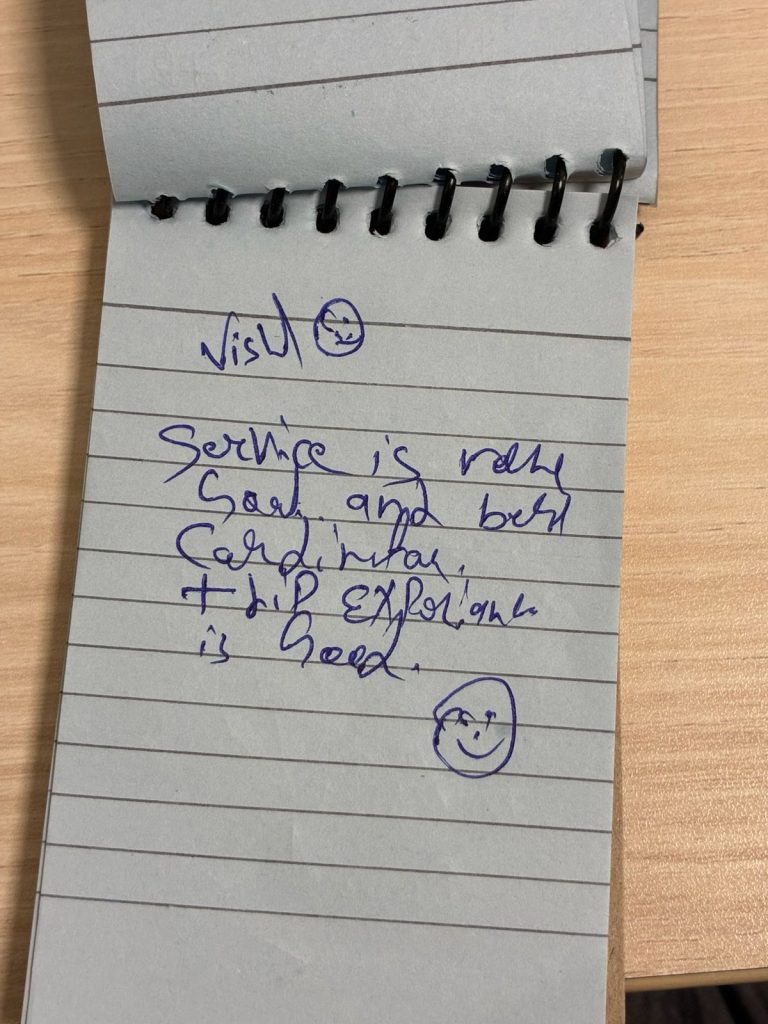 Visu
Service is
and best
Cardinitor.
trip Experiance
is Good.